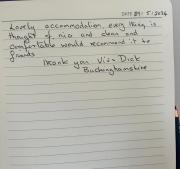 DATE 29/5/2024
Lovely accommodation every thing is
thought of nice and clean and
comfortable would recommend it to
friends
Thank you Viv + Dick
Buckinghamshire